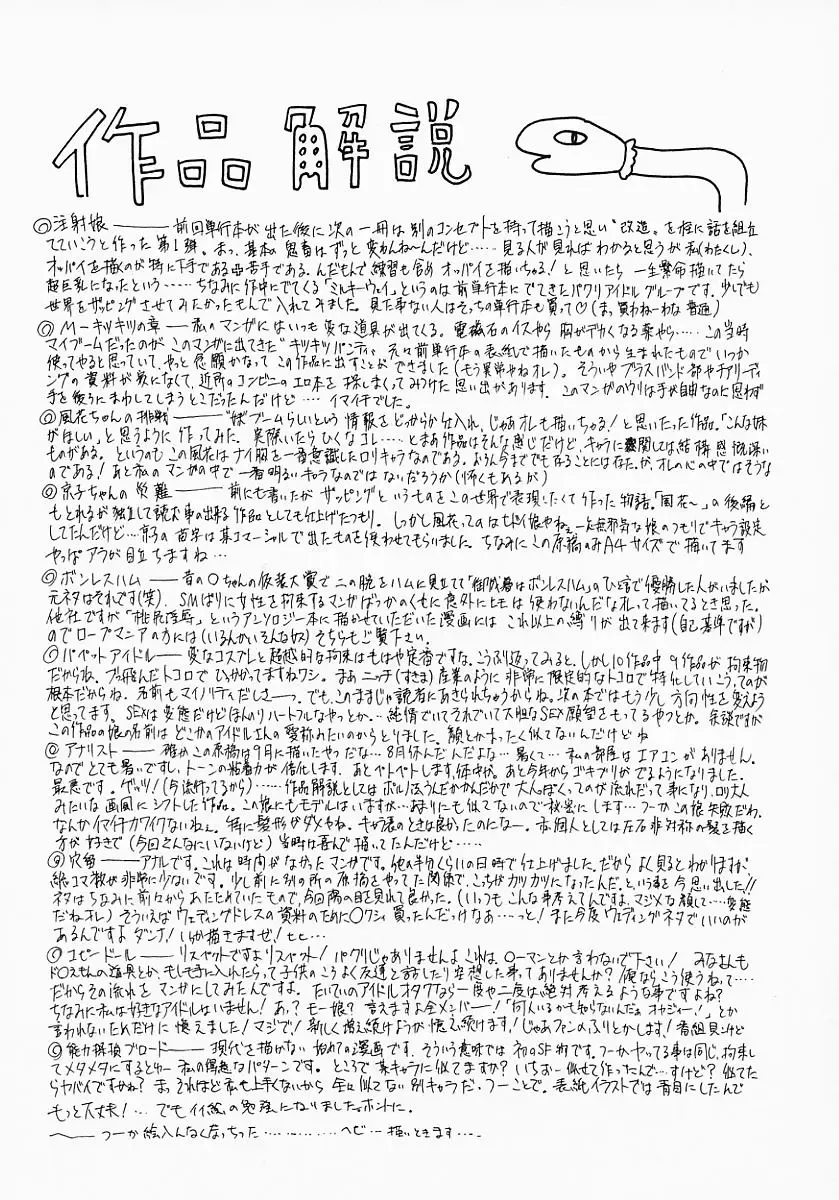 作品解説
◎注射娘――前回単行本が出た後に次の一冊は別のコンセプトを持って描こうと思い"改造"を柱に話を組立
てていこうと作った第1弾。まっ、基本の思考はずっと変わんねーんだけど……見る人が見ればわかると思うが私(わたくし)、
オッパイを描くのが特に下手である西苦手である。んだもんで練習も含めオッパイを描いちゃる!と思いたら一生懸命描いてたら
超巨乳になったという……ちなみに作中にでてくる「ミルキーウェイ」というのは前単行本にでてきたパクリアイドルグループです。少しでも
世界をザッピングさせてみたかったもんで入れてみました。見た事ない人はそっちの単行本も買って♡(ま、買わねーわな普通)
◎M-キツキツの章――私のマンガにはいつも変な道具が出てくる。電磁石のイスやら胸がデカくなる薬やら……この当時
マイブームだったのがこのマンガに出てきた"キツキツパンティ"、元々前単行本の表紙で描いたものから生まれたものでいつか
使ってやると思っていて、やっと念願かなってこの作品に出すことができました(もう異常やねオレ)。そういやブラスバンド部やチアリーディ
ングの資料が家になくて、近所のコンビニのエロ本を探しまくってみつけた思い出があります。このマンガのウリは手が自由なのに思わず
手を後ろにまわしてしまうとこだったんだけど……イマイチでした。
◎風花ちゃんの排射――"妹"ブームらしいという情報をどっからか仕入れ、じゃあオレも描いちゃる!と思いたった作品。「こんな妹
がほしい」と思うように作ってみた。実際いたらひくなコレ……とまあ作品はそんな感じだけど、キャラに関しては結構感慨深い
ものがある。というのもこの風花はナイ胸を一番意識したロリキャラなのである。
のである!あと私のマンガの中で一番明るいキャラなのではないだろうか(怖くもあるが)
◎京子ちゃんの災難――前にも書いたがザッピングというものをこの世界で表現したくて作った物語。「風花～」の後編と
もとれるが独立して読む事の出来る作品としても仕上げたつもり。しかし風花ってのはヒドイ娘やねぇ一応無邪気な娘のつもりでキャラ設定
してたんだけど…京子の苗字は某コマーシャルで出たものを使わせてもらいました。ちなみにこの原稿のみA4サイズで描いてます
やっぱアラが目立ちますね…
◎ボンレスハム――昔の○ちゃんの仮装大賞で二の腕をハムに見立て「御歳暮はボンレスハム」のひと言で優勝した人がいましたが
元ネタはそれです(笑)。SMばりに女性を拘束するマンガばっかのくせに意外にヒモは使わないんだなオレって描いてるとき思った。
他社ですが「桃尻淫辱」というアンソロジー本に描かせていただいた漫画にはこれ以上の縛りが出て来ます(自己基準ですが)
のでロープマニアの方には(いるんかいそんな奴)そちらもご覧下さい。
◎パペットアイドル――変なコスプレと超越的な拘束はもはや定番ですな。こうふり返ってみると、しかし10作品中9作品が拘束物
だからね。ブッ飛んだトコロでひっかかってますねワシ。まあニッチ(すきま)産業のように非常に限定的なトコロで特化していこうってのが
根本だからね。名前もマイノリティだしさーっ。でも、このままじゃ読者にあきられちゃうからね。次の本ではもう少し方向性を変えよう
と思ってます。SEXは変態だけどほんのりハートフルなやつとか…純情でいてそれでいて大胆なSEX願望をもってるやつとか。余談ですが
この作品の娘の名前はどこかのアイドル2人の愛称みたいのからとりました。顔とかまったく似てないんだけどね
◎アナリスト――確かこの原稿は9月に描いたやつだな…8月休んだんだよな…暑くて…私の部屋はエアコンがありません。
なのでとても暑いですし、トーンの粘着力が倍化します。あとベトベトします、体中が。あと今年からゴキブリがでるようになりました。
最悪です。ゲッツ!(今流行ってるから)……作品解説としては
みたいな画風にシフトした作品。この娘にもモデルはいますが…余りにも似てないので秘密にします…つーかこの娘失敗だわ、
なんかイマイチカワイクないねぇ。特に髪形がダメやね。キャラ表のときは良かったのになー。ホ、個人としては左右非対称の髪を描く
方が好きで(今回こんなにいないけど)当時は喜んで描いてたんだけど……
◎穴魚――アナルです。これは時間がなかったマンガです。他の半分くらいの日時で仕上げました。だからよく見るとわかりますが
総コマ数が非常に少ないです。少し前に別の所の原稿をやってた関係で、こっちがカツカツになったんだ、という事を今思い出した!!
ネタはちなみに前々からあたためていたもので、今回陽の目を見れて良かった。(いっつもこんな事考えてんですよ、マジメな顔して…変態
だねオレ)そういえばウェディングドレスの資料のために○クシィ買ったんだっけなあ…っと!また今度ウェディングネタでいいのが
あるんですよダンナ!いつか描きますぜ!ヒヒ…
◎コピードール――リスペクトですよリスペクト!パクりじゃありませんよこれは。○ーマンとか言わないで下さい!みなさんも
ド○えもんの道具とか、もしも手に入れたらって子供のころよく友達と話したり空想した事ってありませんか?俺ならこう使うねって……
だからその流れをマンガにしてみたんですよ。たいていのアイドルオタクなら一度や二度は絶対考えるような事ですよね?
ちなみに私は好きなアイドルはいません!あっ?モー娘?言えますよ全メンバー!「何人いるかも知らないんだぁオヤジィー!」とか
言われないためだけに憶えました!マジで!新しく増え続けようが憶え続けます!じゃあファンのふりとかします!
◎能力探偵ブロード――現代を描かない始めての漫画です。そういう意味では初のSF物です。つーかやってる事は同じ、拘束し
てメタメタにするとゆー私の得意なパターンです。ところで某キャラに似てますか?いちおー似せて作ったんで…すけど?似てた
らヤバイですかね?まっそれほど私も上手くないから全然似てない別キャラだ、つーことで。表紙イラストでは青目にしたんで
もっと大丈夫!…でもイイ絵の勉強になりました。ホントに。
～――つーか絵入んなくなっちった…………ヘビ…描いときます……